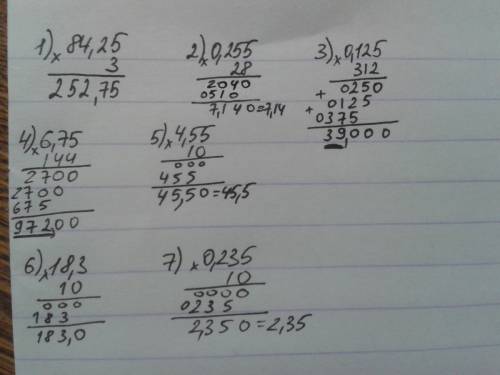 1) × 84,25
3
252,75
2) × 0,255
28
2040
0510
7,140=7,14
3) × 0,125
312
+ 0250
+ 0125
0375
39,000
4) × 6,75
144
2700
2700
675
97200
5) × 4,55
10
000
455
45,50=45,5
6) × 18,3
10
000
183
183,0
7) × 0,235
10
0000
0235
2,350=2,35